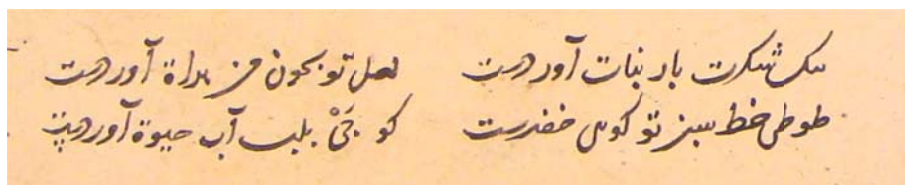 تنک شکرت بار نبات آوردست لعل تو بخون من برات آوردست
طوطی خط سبز تو گویی خضرست کو پی بلب آب حیوة آوردست